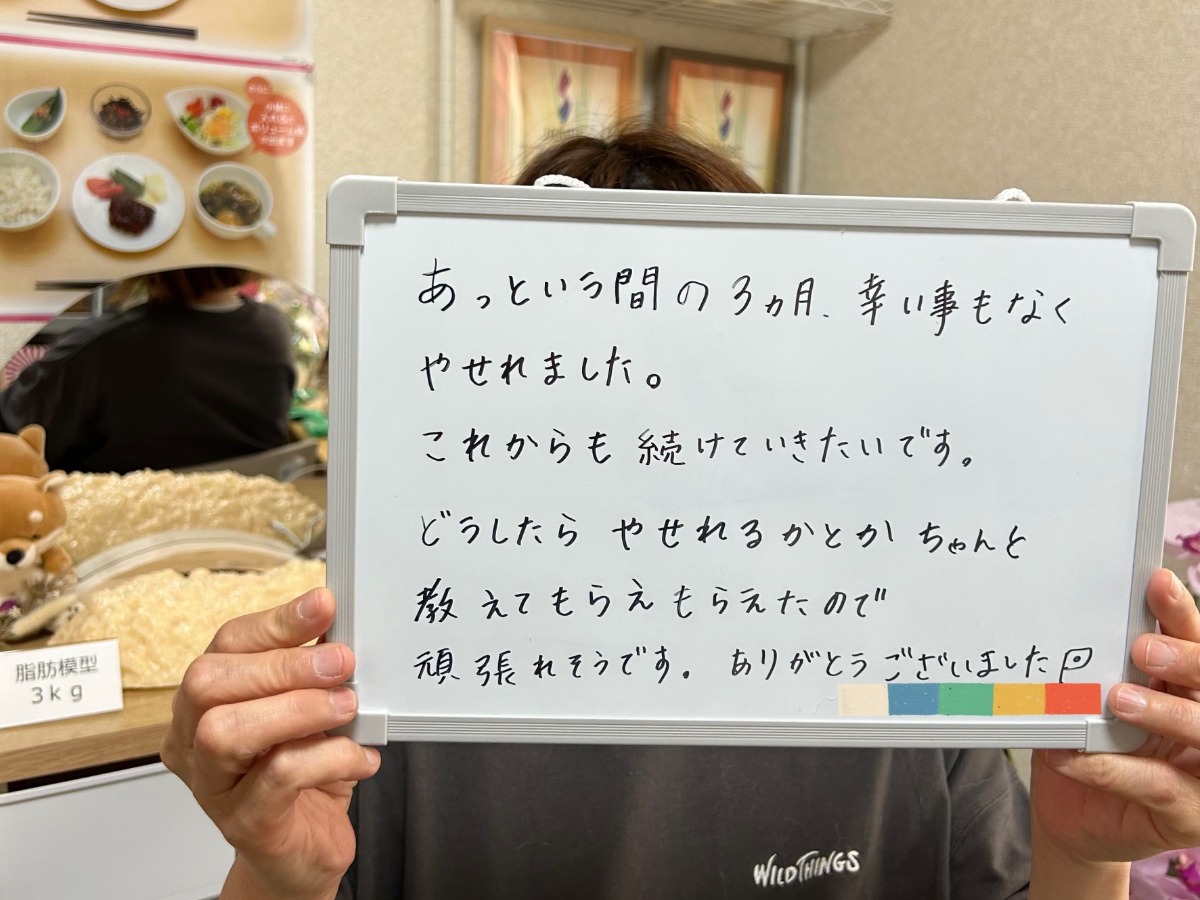 あっという間の3ヵ月、幸い事もなく
やせれました。
これからも続けていきたいです。
どうしたら やせれるかとか ちゃんと
教えてもらえもらえたので
頑張れそうです。ありがとうございました
脂肪模型
3kg
WILDTHINGS